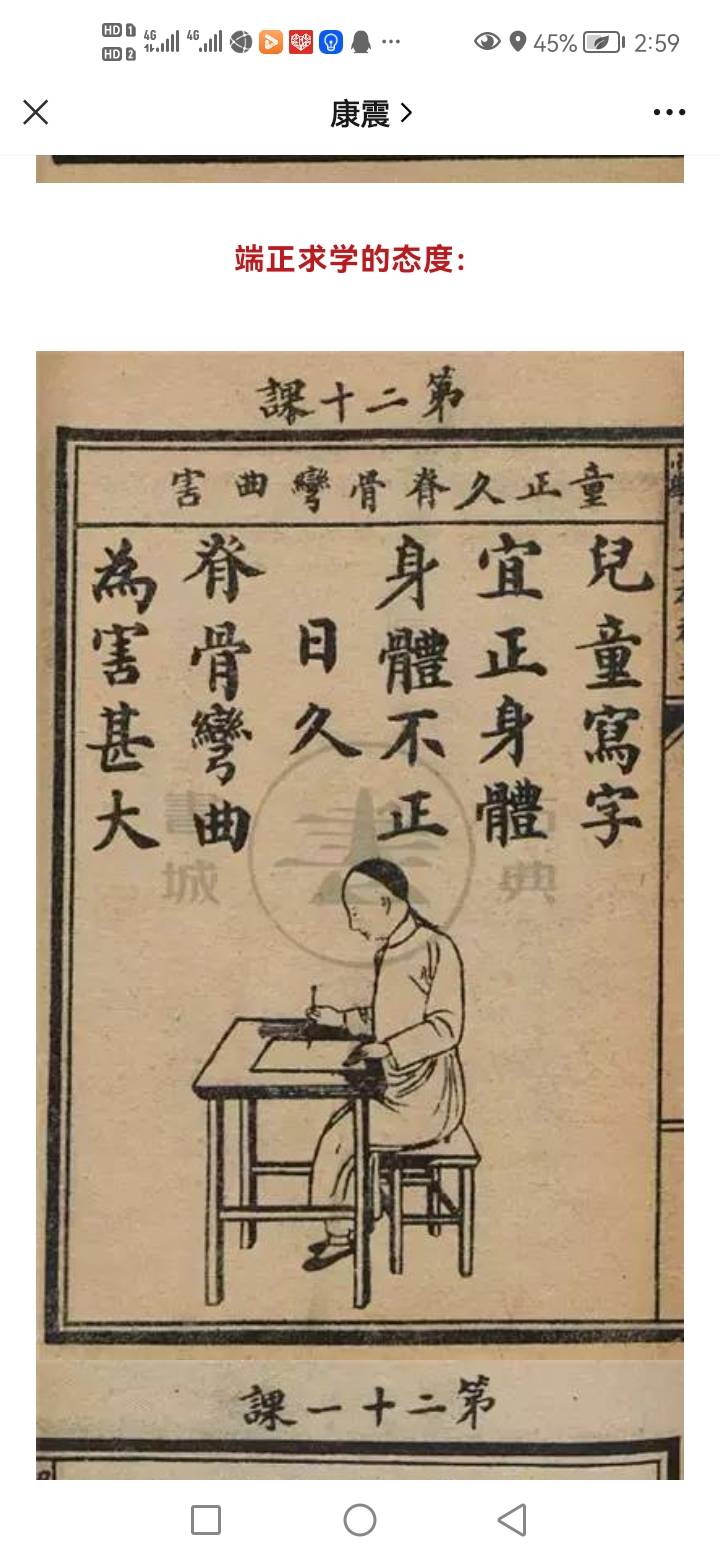 HD 1 4G 4G 45% 2:59
HD 2
康震
端正求学的态度：
第二十課
童正久脊骨彎曲害
兒童寫字
宜正身體
身體不正
日久
脊骨彎曲
為害甚大
古典
書城
第二十一課